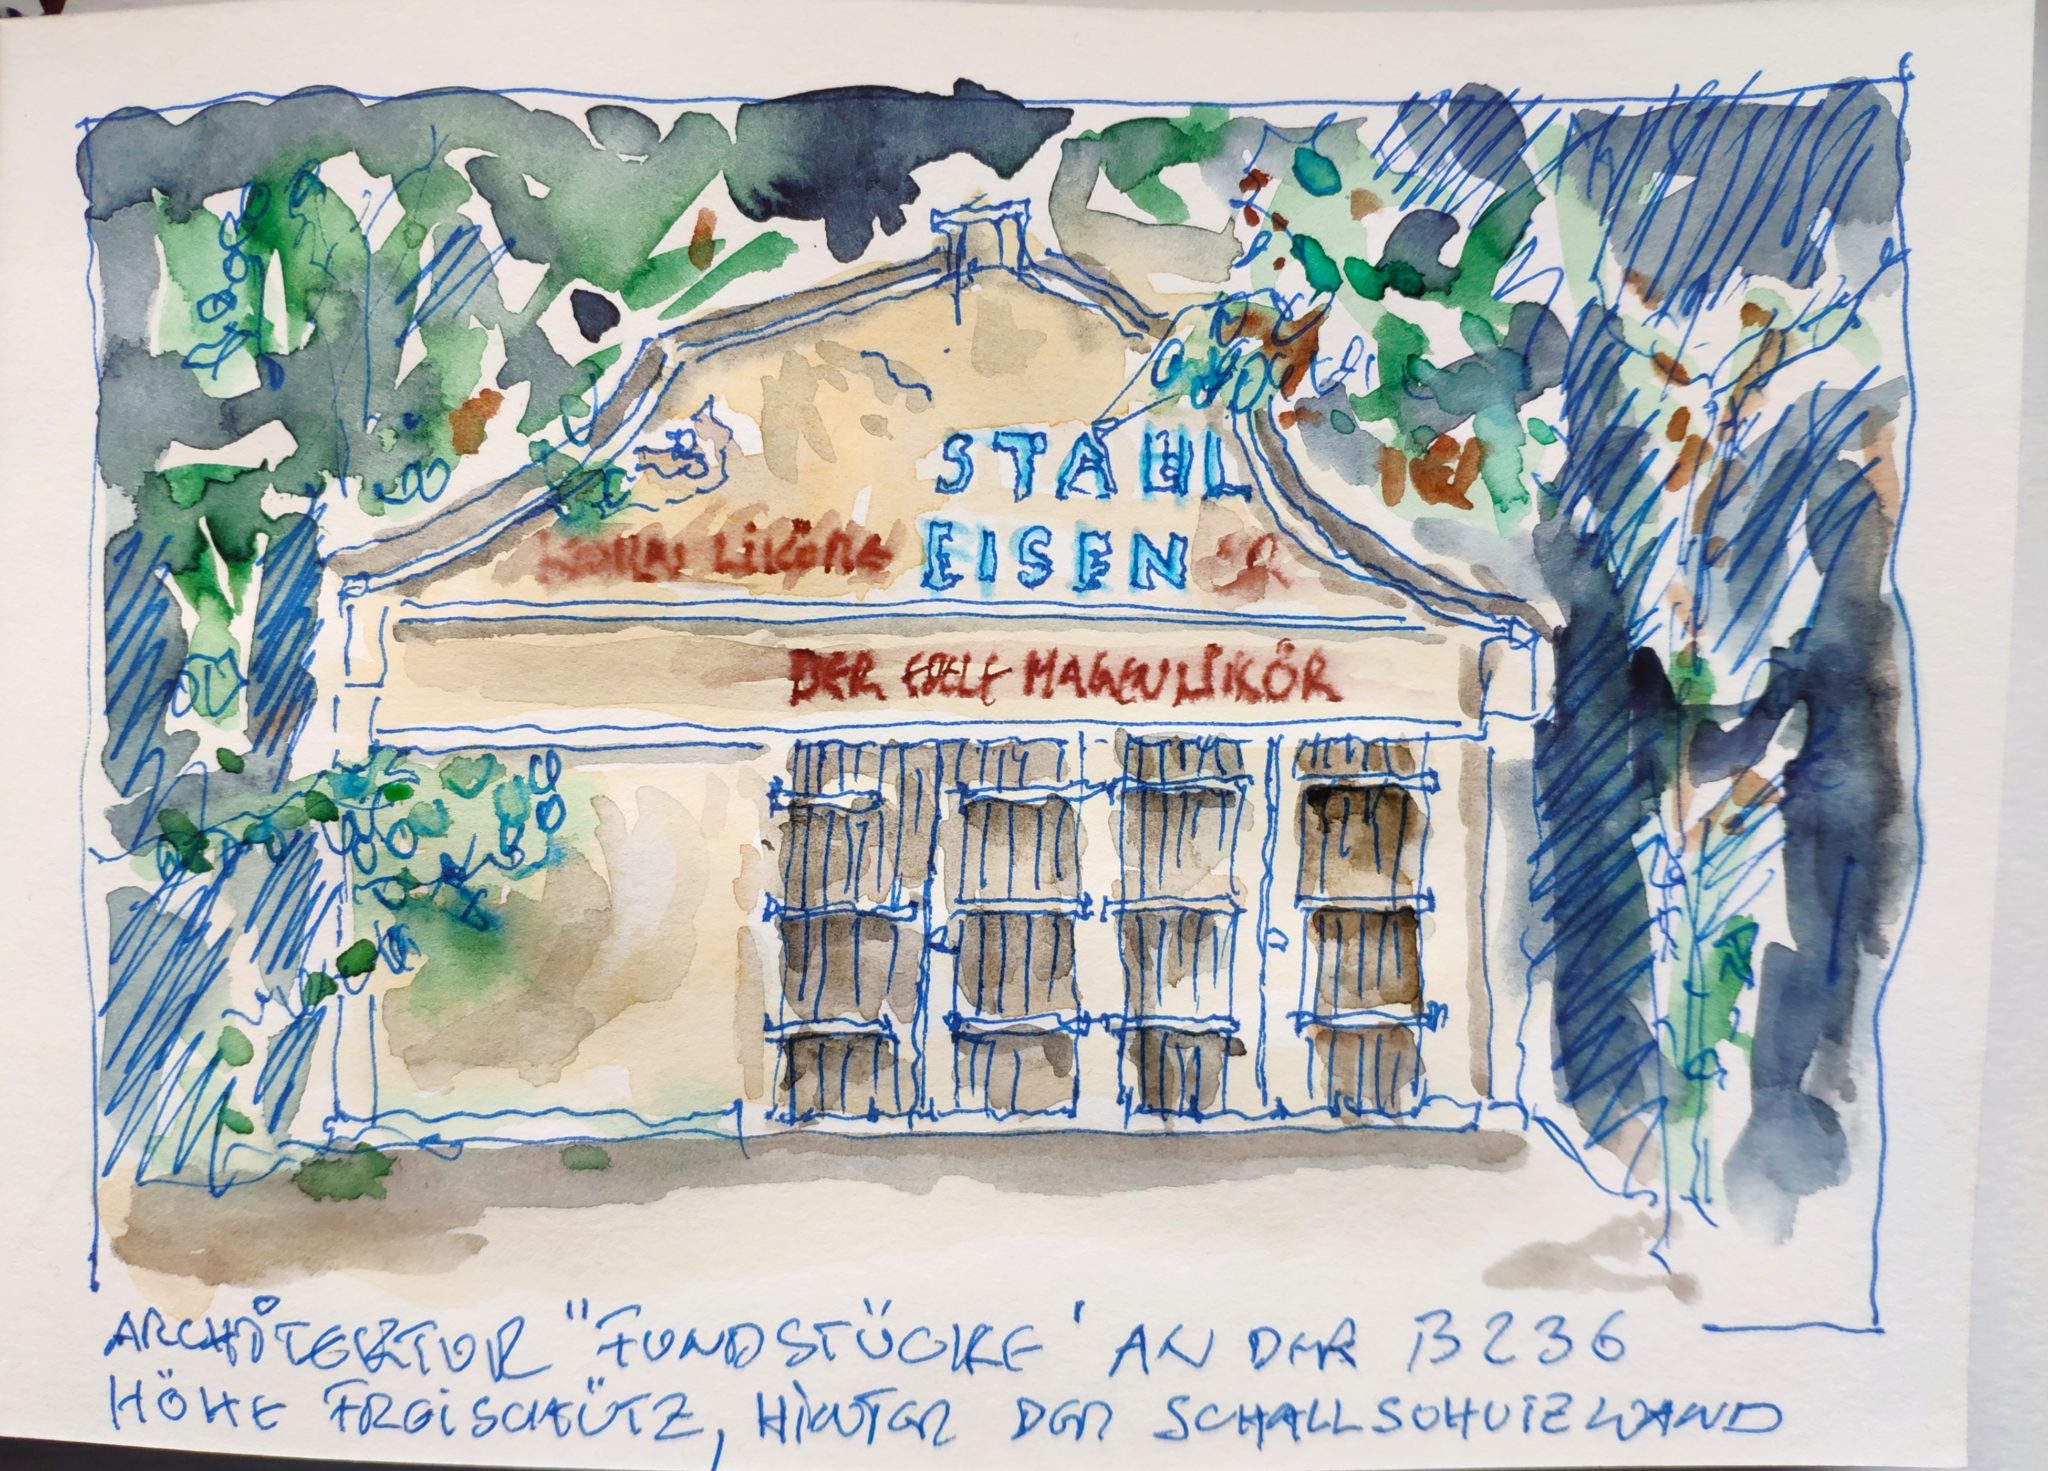 STAHL
LIKÖRE EISEN ER
DER EDELE MAGENLIKÖR
ARCHITEKTUR "FUNDSTÜCKE' AN DER B236
HÖHE FREISCHÜTZ, HINTER DER SCHALLSCHUTZWAND